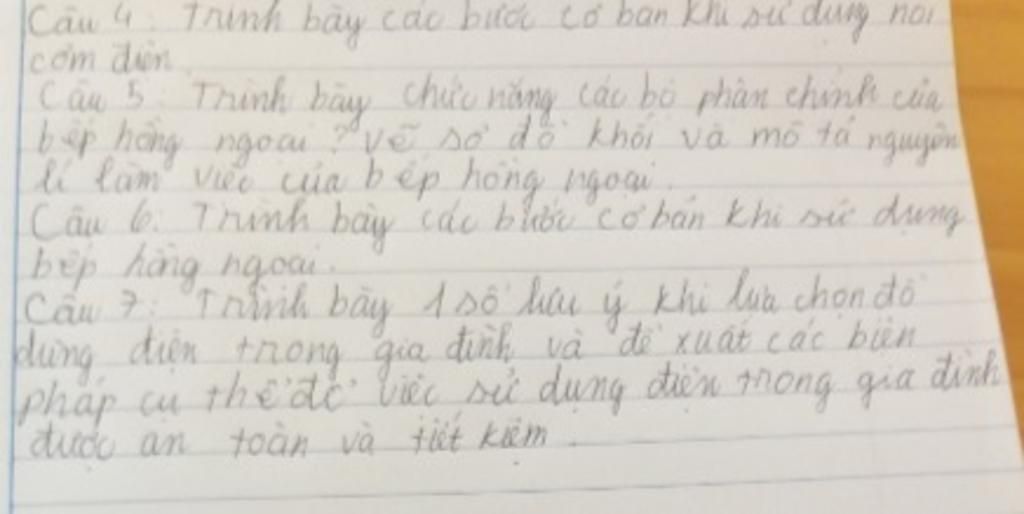 Câu 4: Trình bày các bước cơ bản khi sử dụng nồi
cơm điện
Câu 5: Trình bày chức năng các bộ phận chính của
bếp hồng ngoại? Vẽ sơ đồ khối và mô tả nguyên
lí làm việc của bếp hồng ngoại.
Câu 6: Trình bày các bước cơ bản khi sử dụng
bếp hồng ngoại.
Câu 7: Trình bày 1 số lưu ý khi lựa chọn đồ
dùng điện trong gia đình và đề xuất các biện
pháp cụ thể để việc sử dụng điện trong gia đình
được an toàn và tiết kiệm.